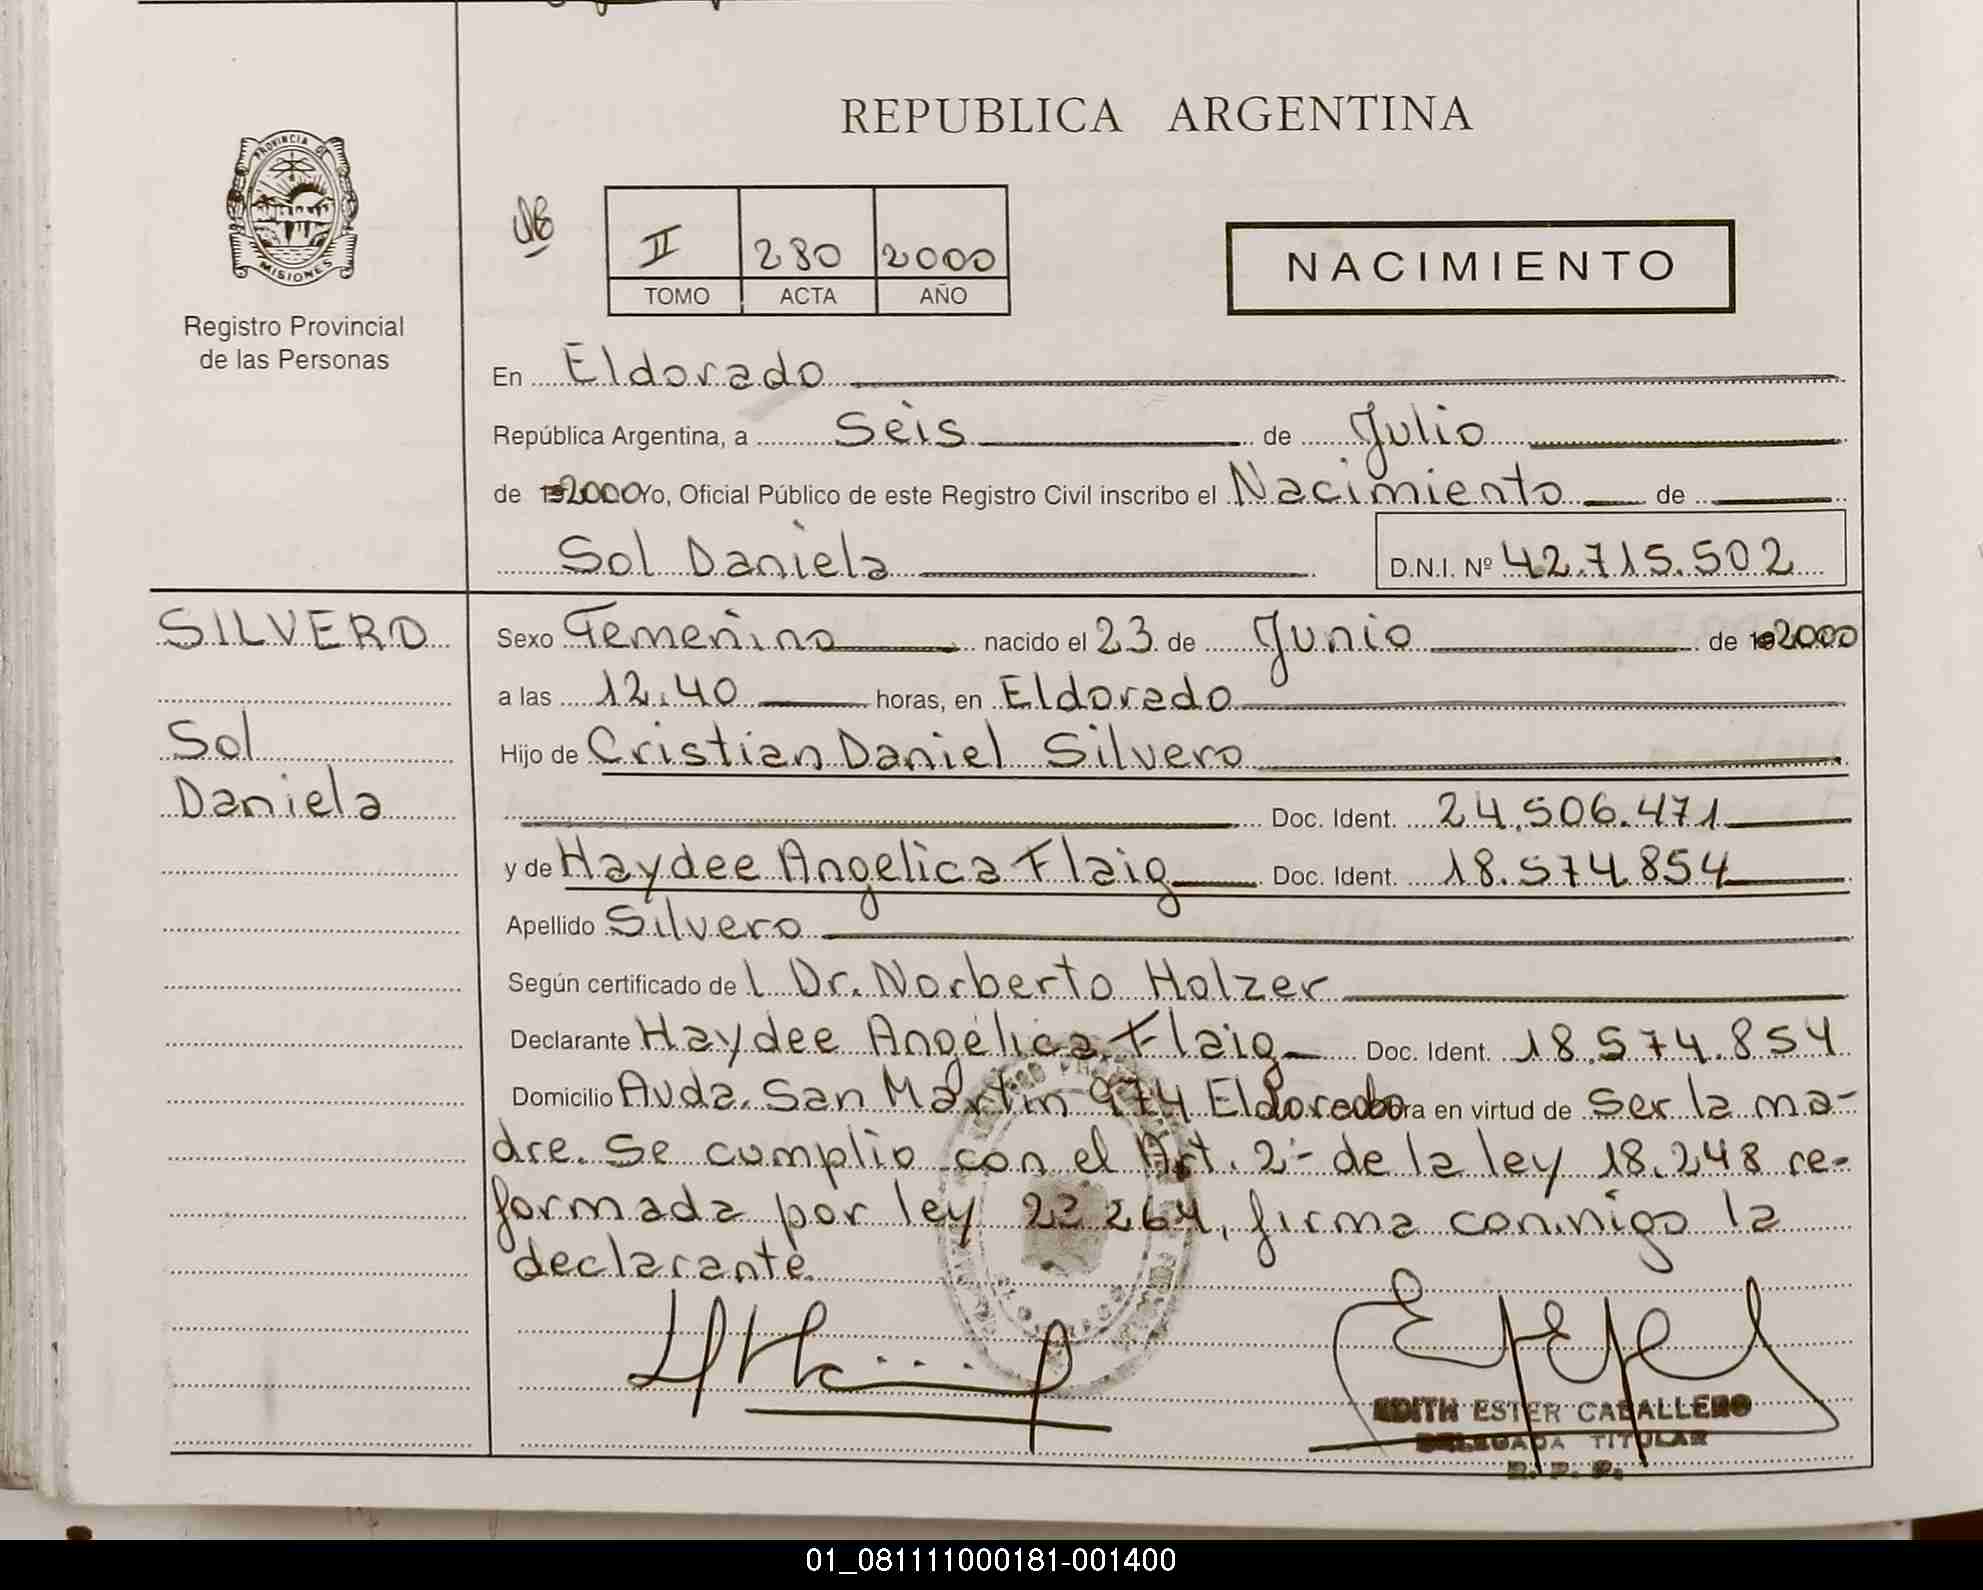 REPUBLICA ARGENTINA
PROVINCIA DE
MISIONES
Registro Provincial
de las Personas
II 280 2000
TOMO ACTA AÑO
NACIMIENTO
En Eldorado
República Argentina, a Seis de Julio
de 2000 Yo, Oficial Público de este Registro Civil inscribo el Nacimiento de
Sol Daniela D.N.I. Nº 42.715.502
SILVERO
Sol
Daniela
Sexo Femenino nacido el 23 de Junio de 2000
a las 12.40 horas, en Eldorado
Hijo de Cristian Daniel Silvero
Doc. Ident. 24.506.471
y de Haydee Angelica Flaig Doc. Ident. 18.574.854
Apellido Silvero
Según certificado de l Dr. Norberto Holzer
Declarante Haydee Angélica Flaig Doc. Ident. 18.574.854
Domicilio Avda. San Martin 974 Eldorado ra en virtud de ser la ma-
dre. Se cumplio con el Art. 2- de la ley 18.248 re-
formada por ley 23 264, firma conmigo la
declarante.
EDITH ESTER CABALLERO
DELEGADA TITULAR
R. P. P.
01_081111000181-001400